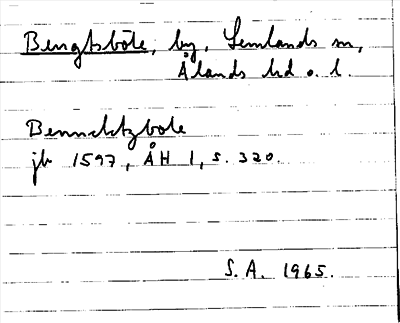 Bengtsböle, by, Lemlands sn,
Ålands hd o. l.
Bennchtzbole
jb 1597, ÅH 1, s. 320.
S. A. 1965.